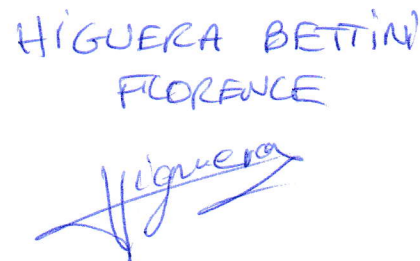 HIGUERA BETTINI
FLORENCE
Higuera